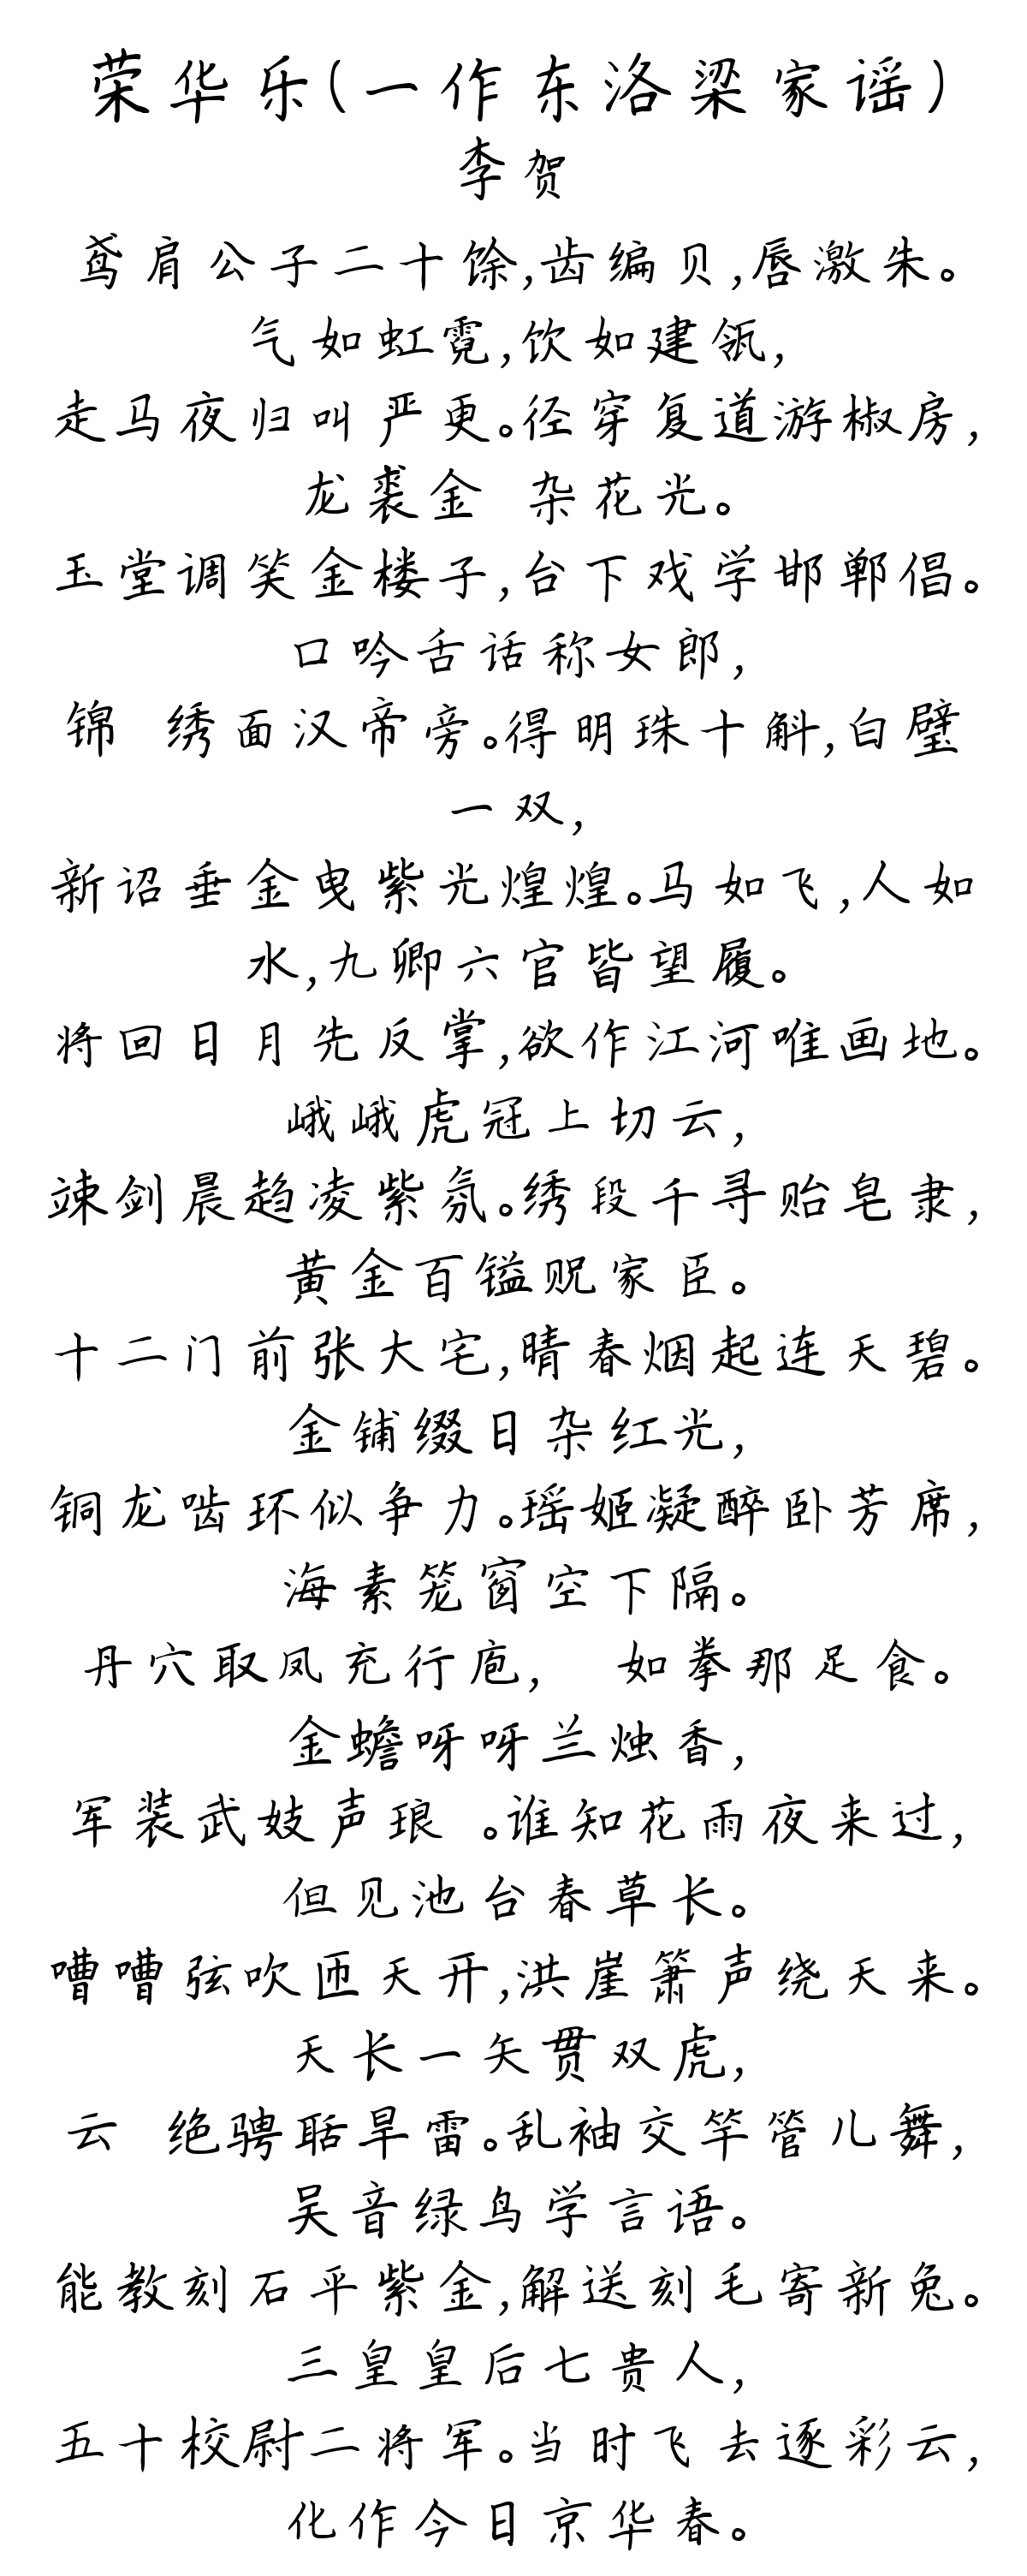 荣华乐(一作东洛梁家谣)
李贺
鸢肩公子二十馀,齿编贝,唇激朱。
气如虹霓,饮如建瓴,
走马夜归叫严更。径穿复道游椒房,
龙裘金 杂花光。
玉堂调笑金楼子,台下戏学邯郸倡。
口吟舌话称女郎,
锦 绣面汉帝旁。得明珠十斛,白璧
一双,
新诏垂金曳紫光煌煌。马如飞,人如
水,九卿六官皆望履。
将回日月先反掌,欲作江河唯画地。
峨峨虎冠上切云,
竦剑晨趋凌紫氛。绣段千寻贻皂隶,
黄金百镒贶家臣。
十二门前张大宅,晴春烟起连天碧。
金铺缀日杂红光,
铜龙啮环似争力。瑶姬凝醉卧芳席,
海素笼窗空下隔。
丹穴取凤充行庖, 如拳那足食。
金蟾呀呀兰烛香,
军装武妓声琅 。谁知花雨夜来过,
但见池台春草长。
嘈嘈弦吹匝天开,洪崖箫声绕天来。
天长一矢贯双虎,
云 绝骋聒旱雷。乱袖交竿管儿舞,
吴音绿鸟学言语。
能教刻石平紫金,解送刻毛寄新兔。
三皇皇后七贵人,
五十校尉二将军。当时飞去逐彩云,
化作今日京华春。